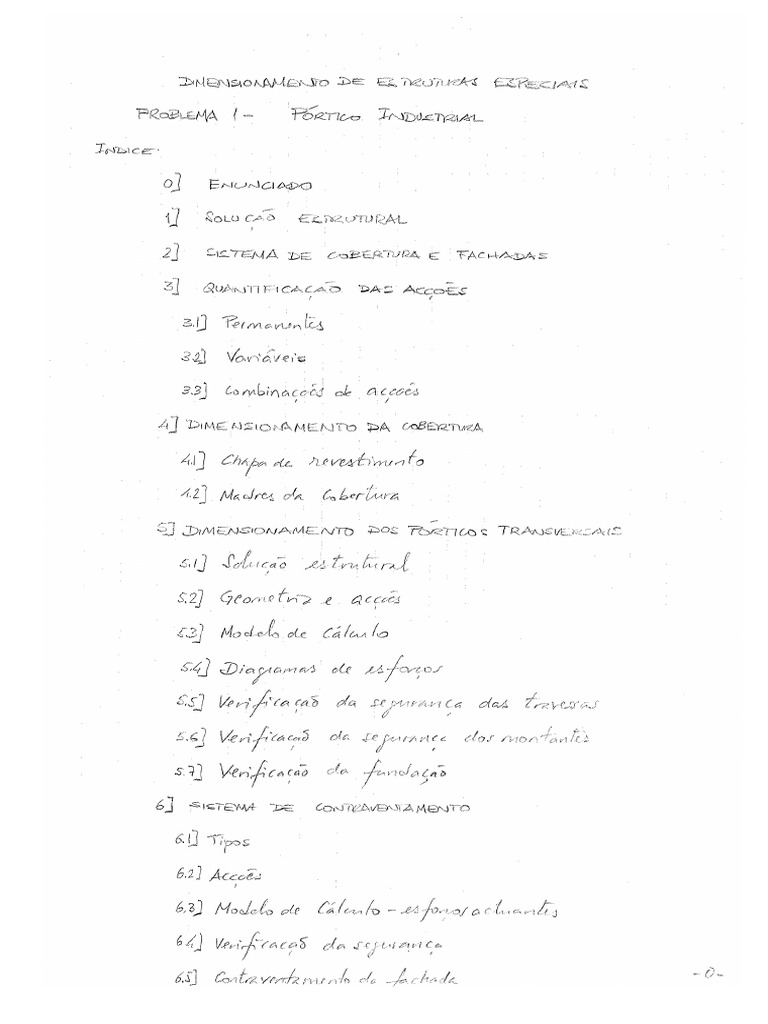 DIMENSIONAMENTO DE ESTRUTURAS ESPECIAIS
PROBLEMA 1 - PÓRTICO INDUSTRIAL
INDICE
0] ENUNCIADO
1] SOLUÇÃO ESTRUTURAL
2] SISTEMA DE COBERTURA E FACHADAS
3] QUANTIFICAÇÃO DAS ACÇÕES
3.1] Permanentes
3.2] Variáveis
3.3] Combinações de acções
4] DIMENSIONAMENTO DA COBERTURA
4.1] Chapa de revestimento
4.2] Madres da Cobertura
5] DIMENSIONAMENTO DOS PÓRTICOS TRANSVERSAIS
5.1] Solução estrutural
5.2] Geometria e acções
5.3] Modelo de Cálculo
5.4] Diagramas de esforços
5.5] Verificação da segurança das travessas
5.6] Verificação da segurança dos montantes
5.7] Verificação da fundação
6] SISTEMA DE CONTRAVENTAMENTO
6.1] Tipos
6.2] Acções
6.3] Modelo de Cálculo - esforços actuantes
6.4] Verificação da segurança
6.5] Contraventamento da fachada
-0-